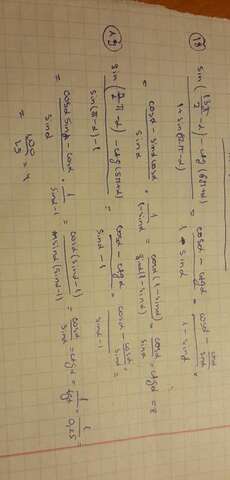 18)
sin(13π/2 - α) - ctg(6π+α) / 1 - sin(12π-α) = cosα - ctgα / 1 - sinα = cosα - cosα/sinα / 1 - sinα
= cosα - sinα cosα / sinα · 1 / 1-sinα = cosα(1-sinα) / sinα(1-sinα) = cosα / sinα = ctgα = 8
19)
sin(π/2 - α) - ctg(5π+α) / sin(π-α) - 1 = cosα - ctgα / sinα - 1 = cosα - cosα/sinα / sinα - 1 =
= cosα sinα - cosα / sinα · 1 / sinα-1 = cosα(sinα-1) / sinα(sinα-1) = cosα / sinα = ctgα = 1 / tgα = 1 / 0,25 =
= 100 / 25 = 4